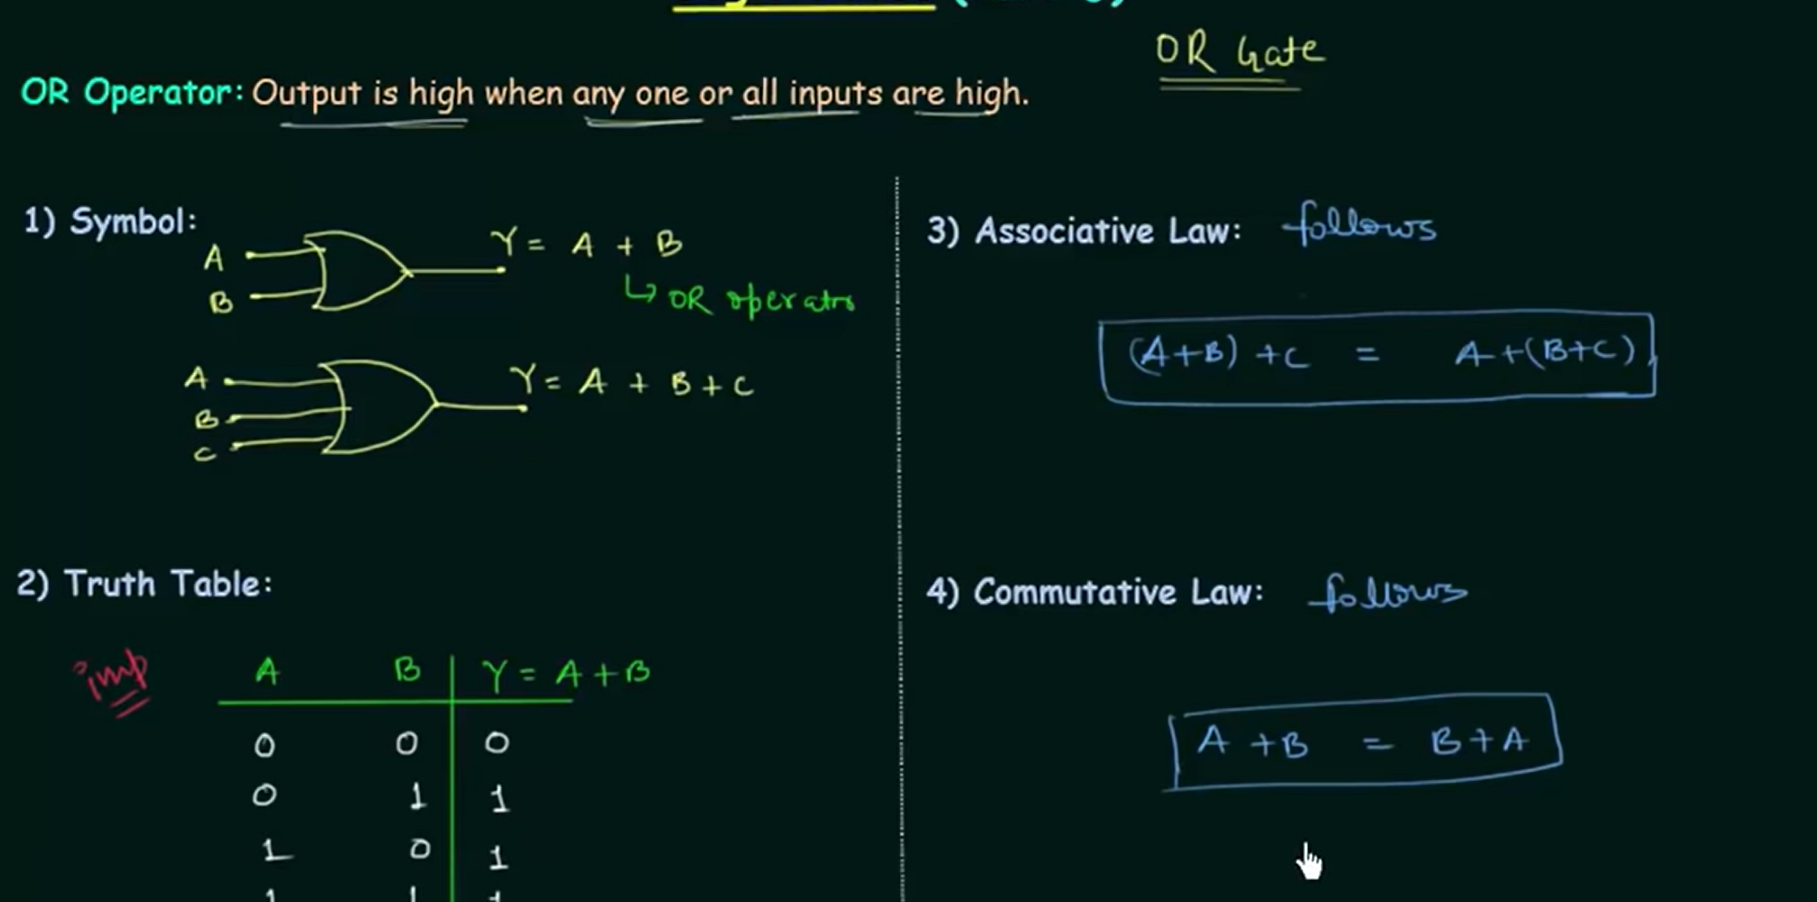 OR Gate
OR Operator: Output is high when any one or all inputs are high.
1) Symbol:
A
B
Y = A + B
↳ OR operator
A
B
C
Y = A + B + C
2) Truth Table:
imp
A B Y = A + B
0 0 0
0 1 1
1 0 1
1 1 1
3) Associative Law: follows
(A+B) + C = A+(B+C)
4) Commutative Law: follows
A + B = B + A